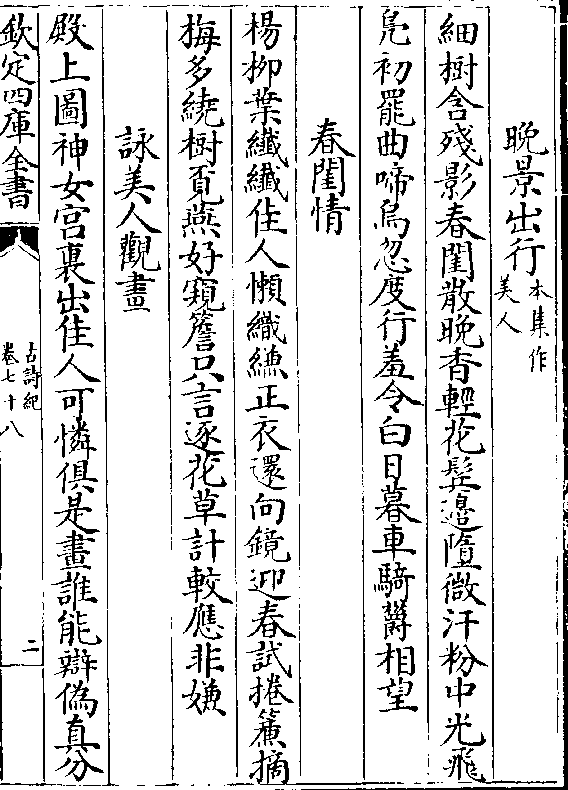 晚景出行本集作美人
細樹含殘影春閨散晚香輕花髩邉墮微汗粉中光飛
鳬初罷曲啼烏忽度行羞令白日暮車騎欝相望
春閨情
楊柳葉纖纖佳人懶織縑正衣還向鏡迎春試捲簾摘
梅多繞樹覔燕好窺簷只言逐花草計較應非嫌
詠美人觀畫
殿上圖神女宫裏出佳人可憐俱是畫誰能辯偽真分
欽定四庫全書
古詩紀
卷七十八
二